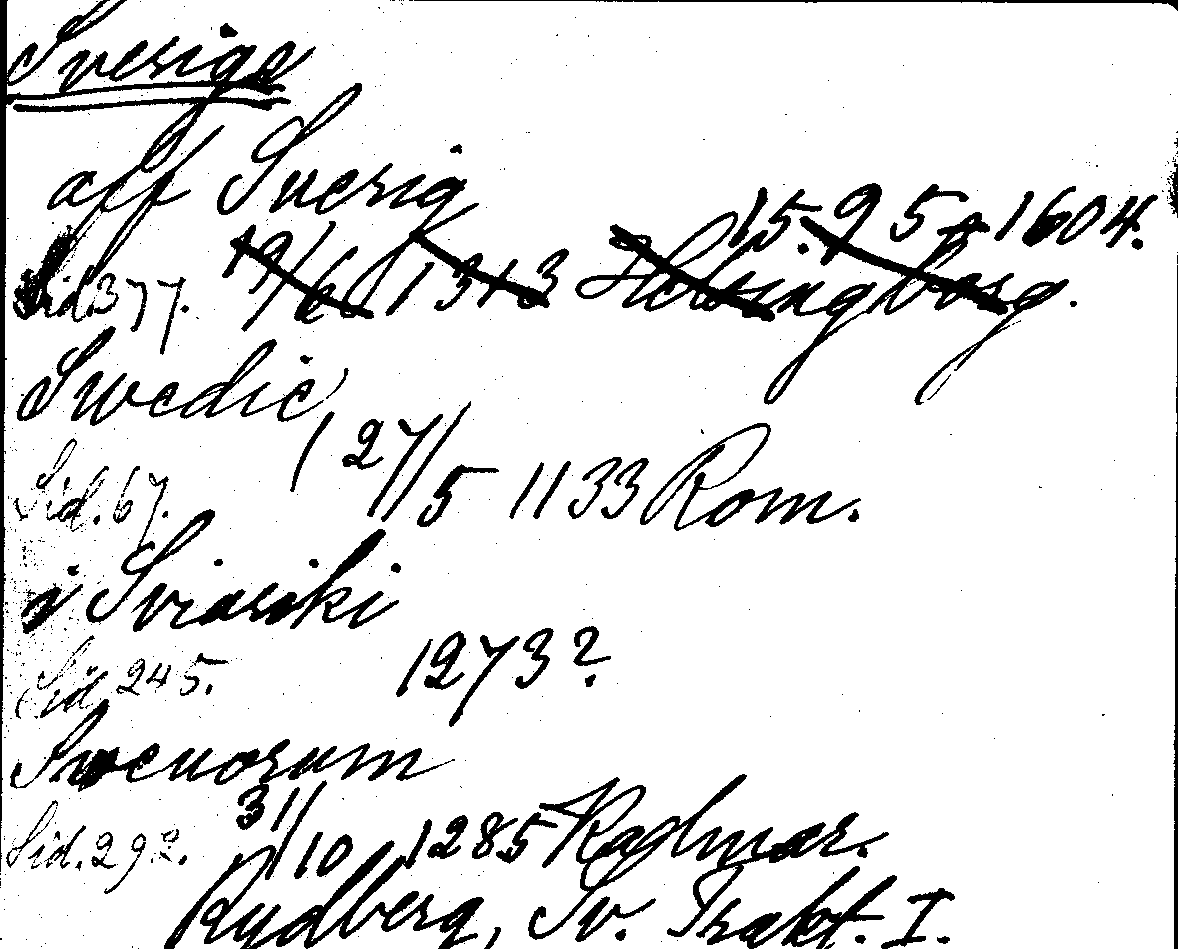 Sverige
aff Sverig
15.9 5 1604.
Sid. 377. 19/6 1313 Helsingborg.
Swedie
Sid. 67. 27/5 1133 Rom.
i Sviariki
Sid. 245. 1273?
Swenorum
Sid. 292. 31/10 1285 Kalmar.
Rydberg, Sv. Trakt. I.